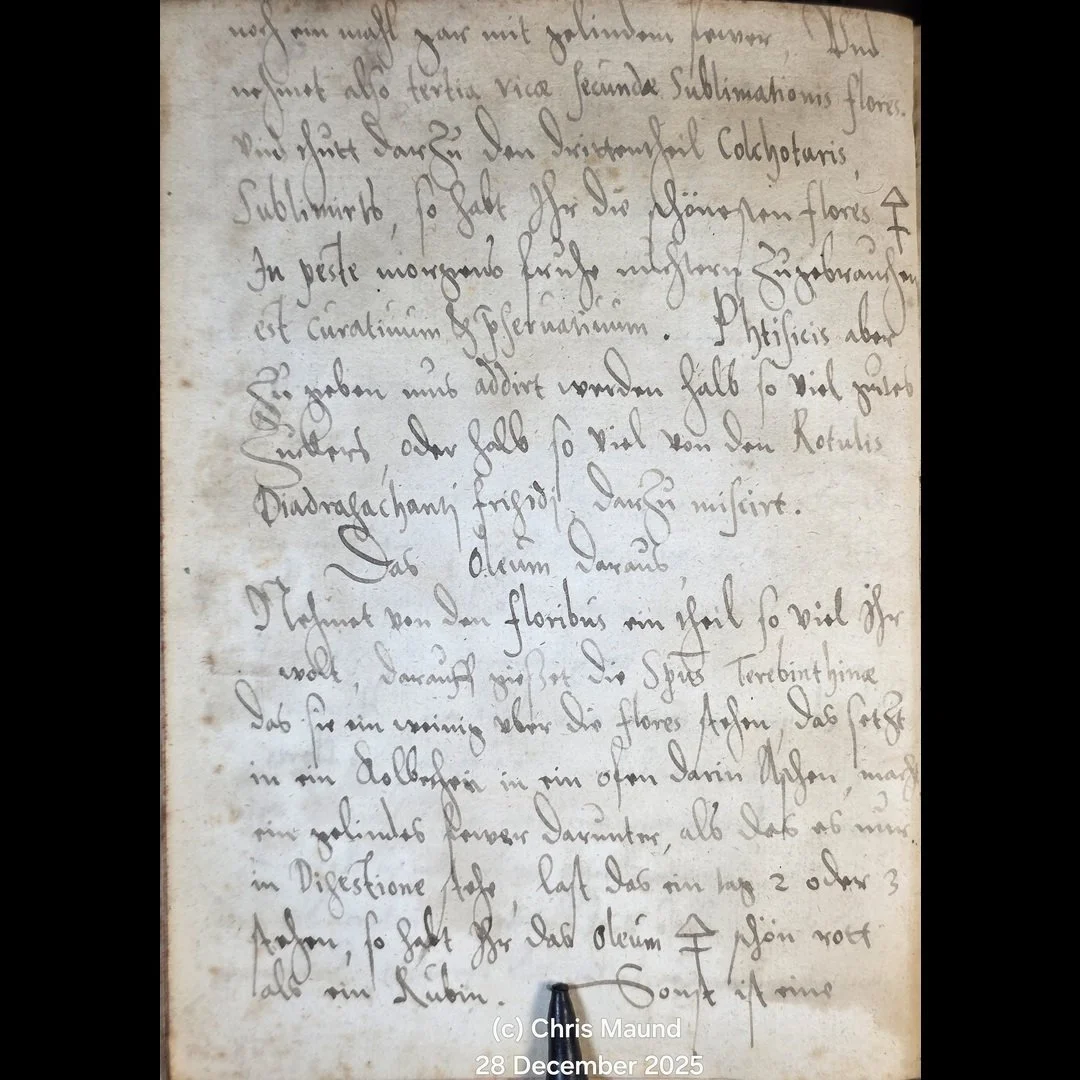 noch ein mahl gar mit gelindem fewer, Vnd
nehmet also tertia vice secundæ Sublimationis flores.
vnd thutt darZu den drittentheil Colchotaris,
Sublimirts, so habt Ihr die schönesten flores 🜍
In peste morgens fruhe nüchtern Zugebrauchen
est curativum & pservativum. Phtisicis aber
Zu geben mus addirt werden halb so viel gutes
Zuckers, oder halb so viel von den Rotulis
Diadragachanti frigidi darZu miscirt.
Das Oleum daraus,
Nehmet von den floribus ein theil so viel Ihr
wolt, darauff giesset die Spūs Terebinthinæ
das sie ein weinig vber die flores stehen, das setzt
in ein Kolbchen in ein ofen darin Aschen, macht
ein gelindes fewer darunter, als das es nur
in Digestione stehe, last das ein tag 2 oder 3
stehen, so habt Ihr das Oleum 🜍 schön rott
als ein Rubin. Sonst ist eine
(c) Chris Maund
28 December 2025